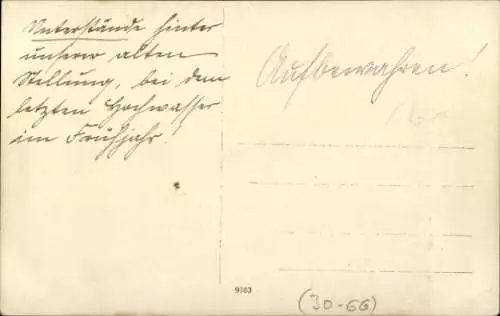 Unterstände hinter
unserer alten
Stellung, bei dem
letzten Hochwasser
im Frühjahr!
Aufbewahren!
9783
(30-66)